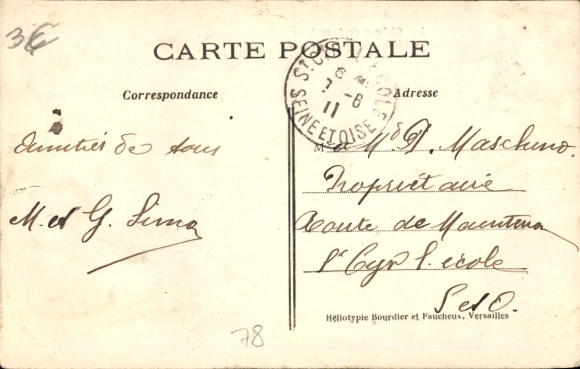 3€
CARTE POSTALE
Correspondance
Adresse
ST CYR L'ÉCOLE
8
7 -8
11
SEINE ET OISE
Amitiés de tous
M. et G. Sima
M. Maschino.
Propriétaire
Route de Maintenon
St Cyr l'école
S et O.
Héliotypie Bourdier et Faucheux, Versailles
78